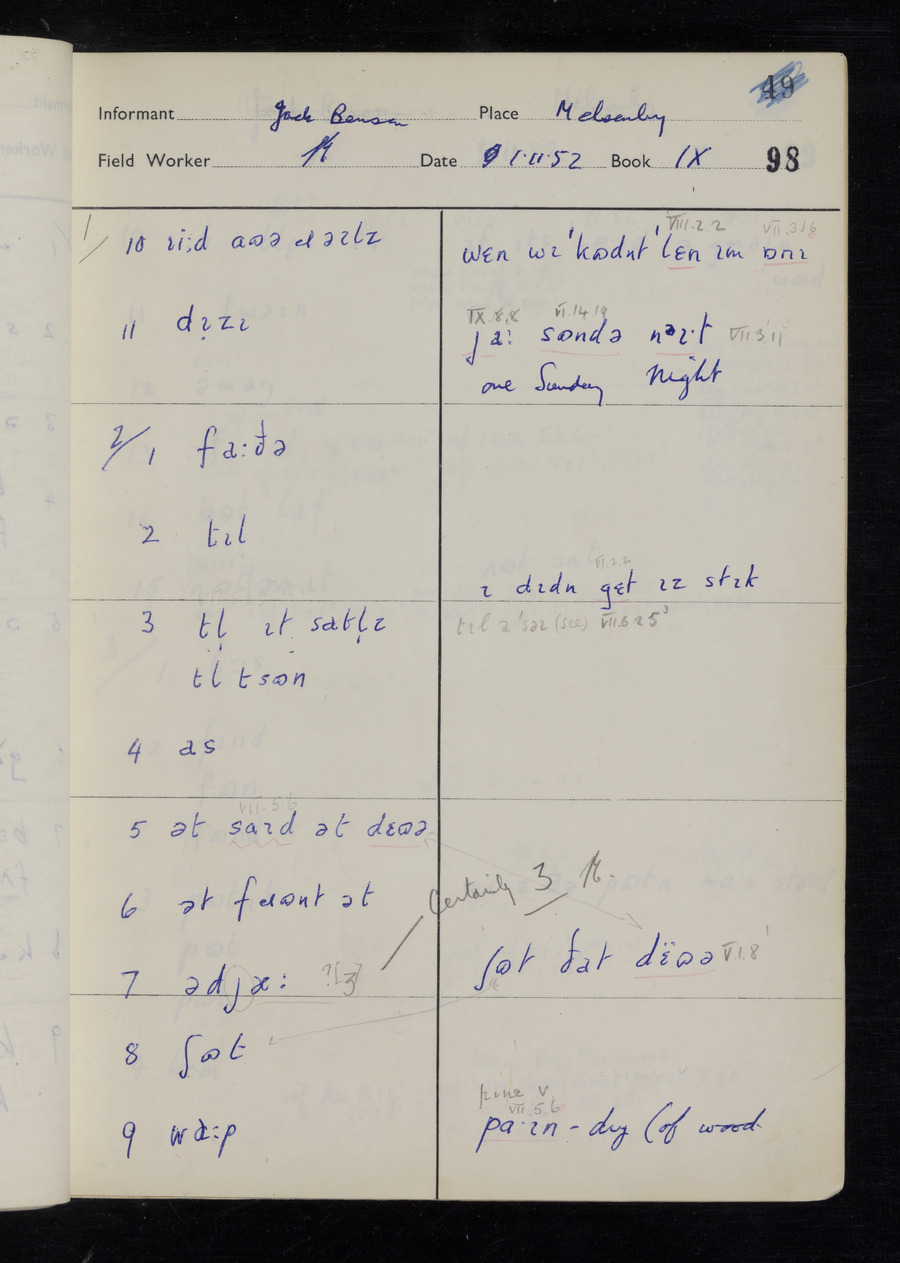 49
Informant Jack Benson Place Melsonby
Field Worker Date 1.11.52 Book IX 98
1/ 10
11 dɪzɪ
2/1 fa:ðə
2 tɪl
3 tl̩ ɪt satl̩z
tl t sɷn
4 as
VII.5.6
5 ət saɪd ət dɛɷə
6 ət fɹɷnt ət
7 ədja: ?[ʒ]
8 ʃɷt
9 wa:p
VIII.2.2 VII.3.16
wɛn wɪ 'kɷdnt 'lɛn ɪm ɒnɪ
IX.8.8 VI.14.19
ja: sɷndə nəɪ·t VII.3.11
one Sunday Night
VI.2.2
ɪ dɪdn gɛt ɪz stɪk
tɪl ə 'səɪ (see) VII.6.25³
Certainly 3
ʃɷt ðat dɛ̈ɷə V.1.8
pine v.
VII.5.6
pa·ɪn - dry (of wood